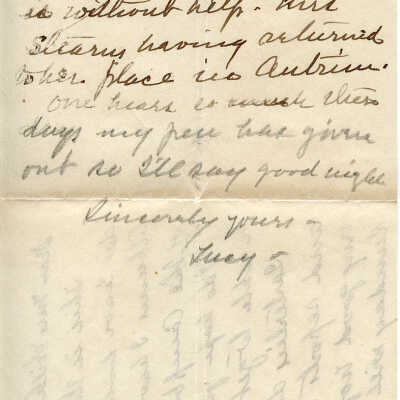 is without help. Mrs
Stearns having returned
to her place in Antrim.
One hears so much these
days my pen has given
out so I'll say good night
Sincerely yours -
Lucy -